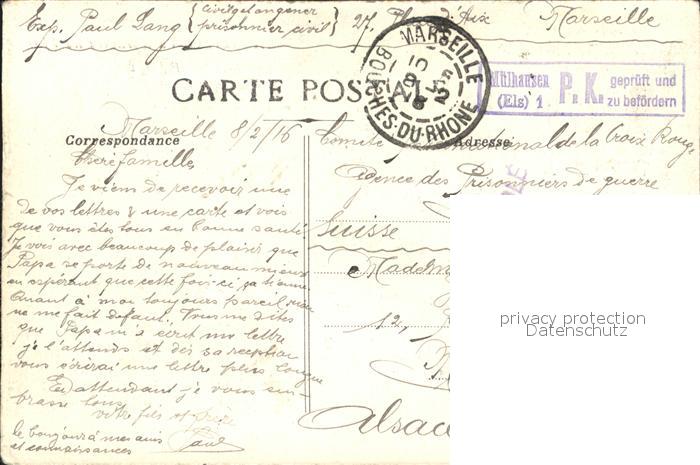 Exp. Paul Lang { civilgefangener prisonnier civil } 27. Place d'Aix Marseille
MARSEILLE
BOUCHES-DU-RHONE
Mülhausen (Els) 1. P. K. geprüft und zu befördern
CARTE POSTALE
Correspondance
Adresse
Marseille 8/2/16
Chère famille,
Je viens de recevoir une
de vos lettres & une carte et vois
que vous êtes tous en bonne santé
Je vois avec beaucoup de plaisir que
Papa se porte de nouveau mieux
en espérant que cette fois-ci ça tienne
Quant à moi toujours pareil, rien
ne me fait défaut. Vous me dites
que Papa m'a écrit une lettre
je l'attends et dès sa reception
vous écrirai une lettre plus longue
En attendant je vous em-
brasse tous
votre fils et frère
Paul
le bonjour à mes amis
et connaissances
Comité de la Croix Rouge
Agence des Prisonniers de guerre
Suisse
12,
Alsac
privacy protection
Datenschutz